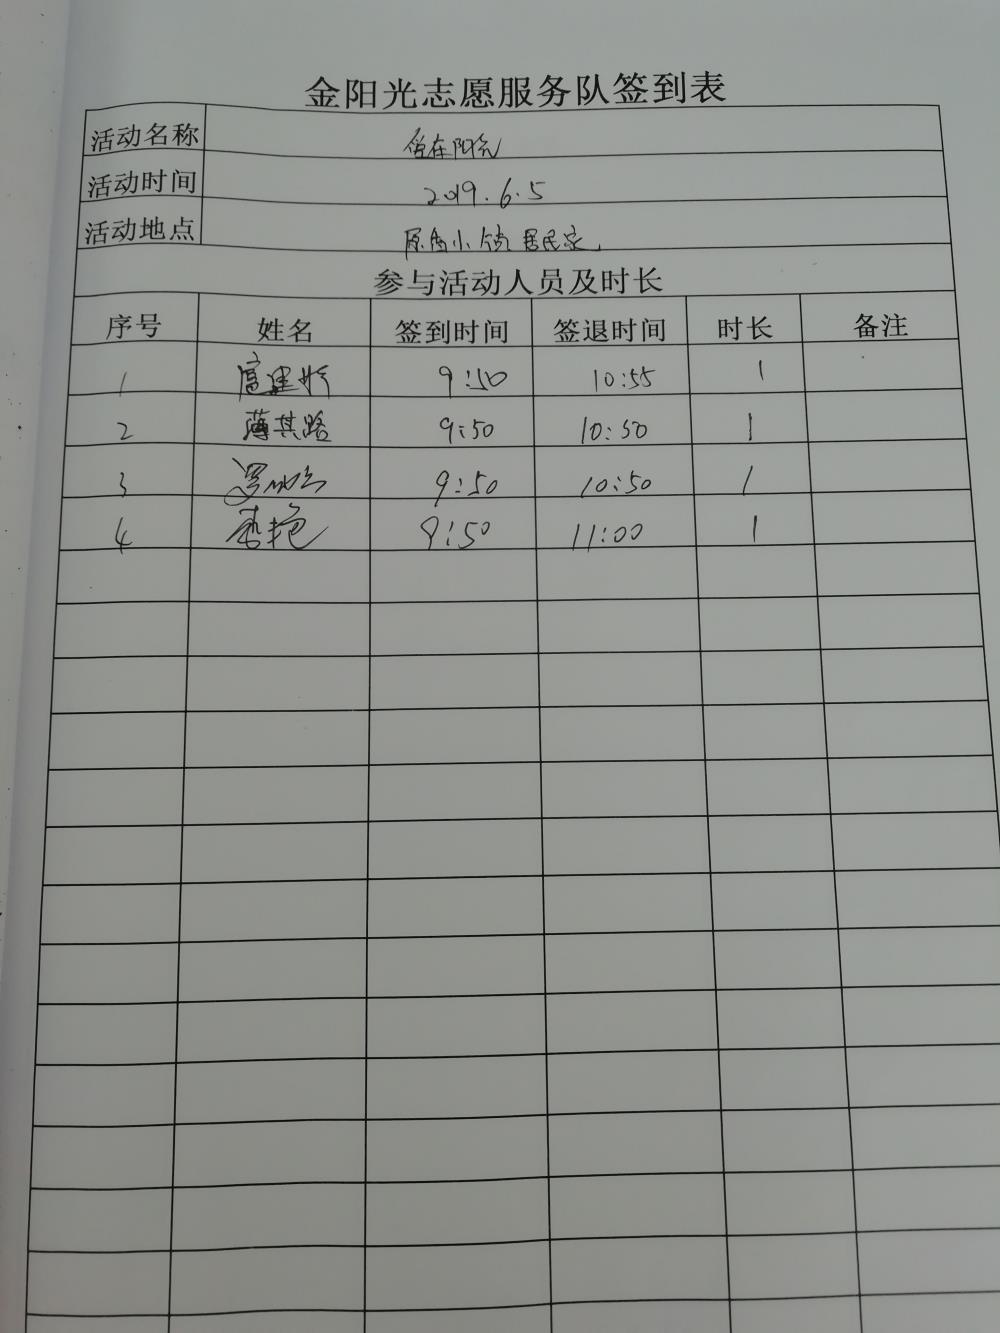 金阳光志愿服务队签到表
活动名称 在阳光
活动时间 2019.6.5
活动地点 原香小镇居民家
参与活动人员及时长
序号 姓名 签到时间 签退时间 时长 备注
1 9:50 10:55 1
2 薄其路 9:50 10:50 1
3 9:50 10:50 1
4 李艳 9:50 11:00 1